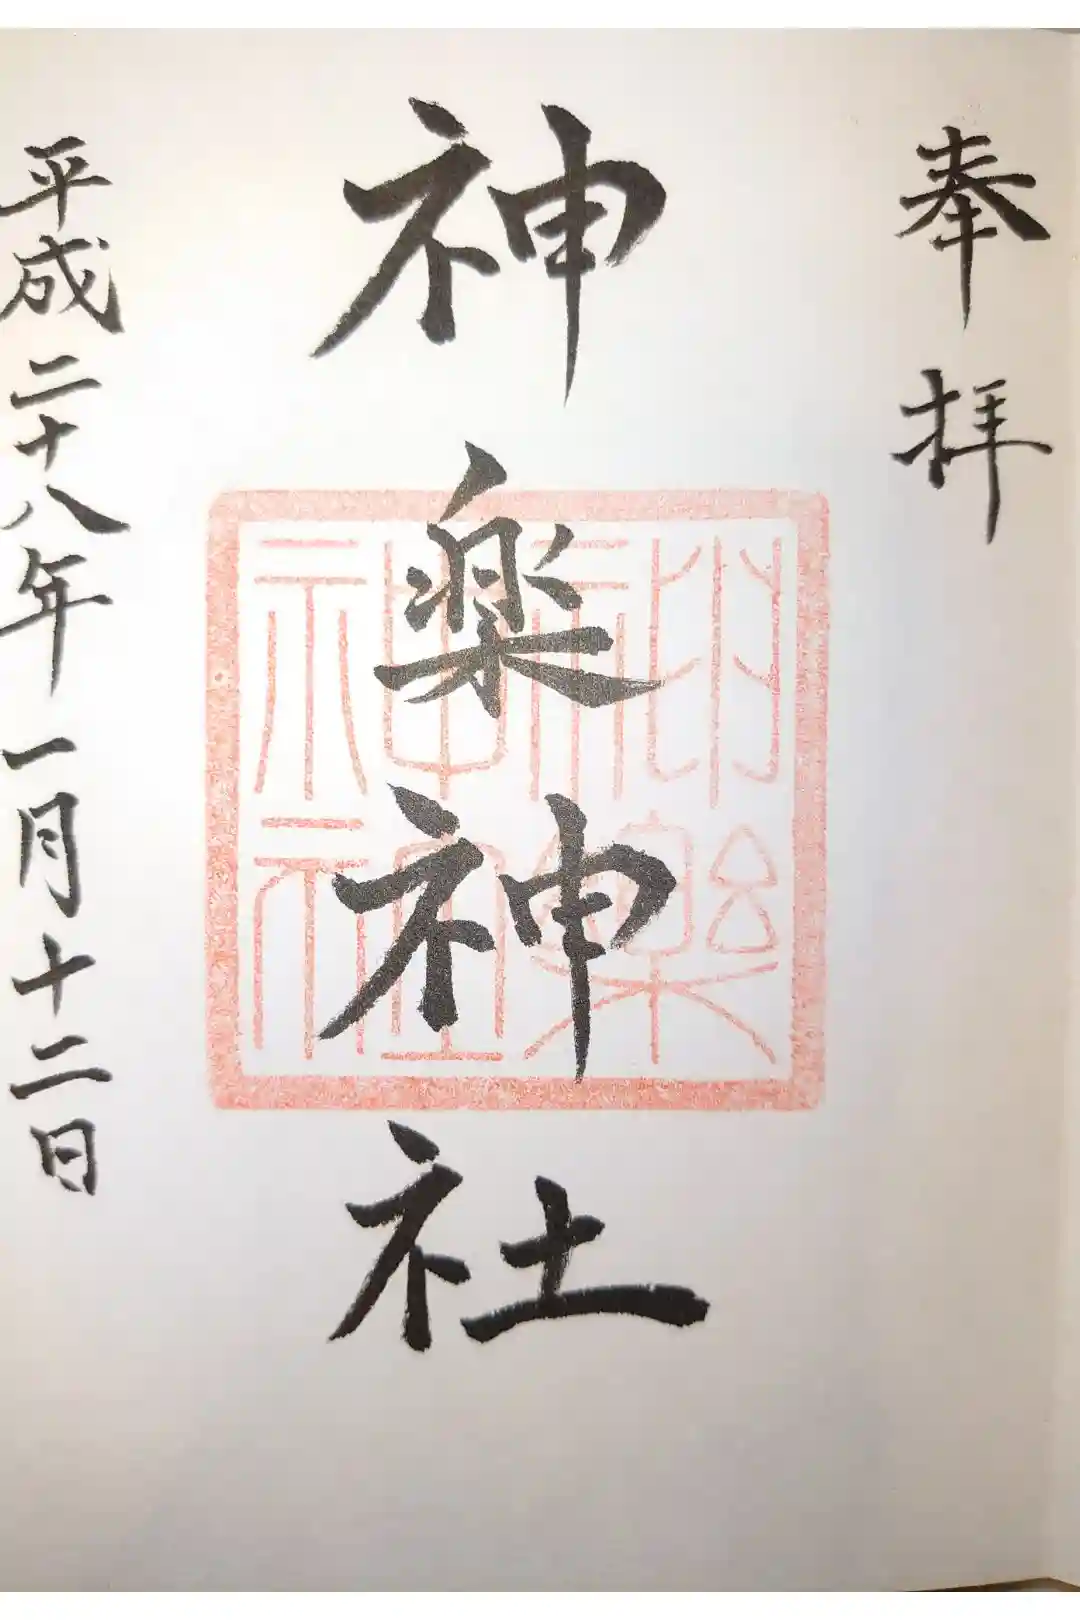 奉拝
神楽神社
神楽神社
平成二十八年一月十二日